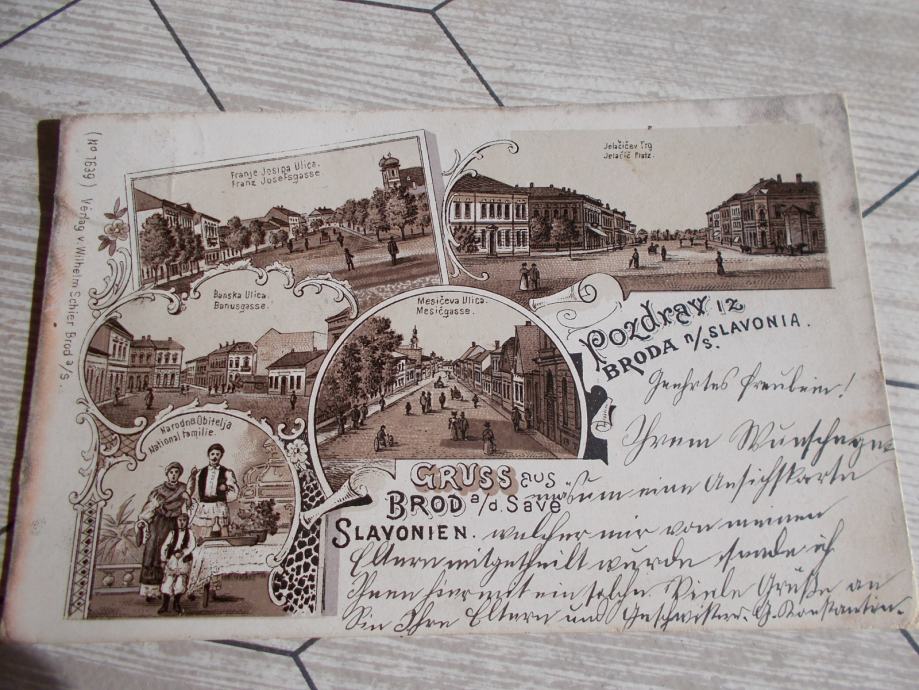 (No 1639) Verlag v Wilhelm Schier Brod a/s.
Franje Josipa Ulica.
Franz Josefsgasse
Jelačićev Trg
Jelačić Platz.
Banska Ulica.
Banusgasse.
Mesićeva Ulica.
Mesićgasse.
Narodna Obitelja
National familie.
Pozdrav iz
BRODA n/S. SLAVONIA.
GRUSS aus
BROD a/d. Save
SLAVONIEN.
Geehrtes Fräulein!
Ihrem Wunsche
um eine Ansichtskarte
welcher mir von meinen
Eltern mitgetheilt wurde sende ich
Ihnen hiermit ein solche. Viele Grüße an
Sie Ihre Eltern und Geschwister. G. Konstantin.